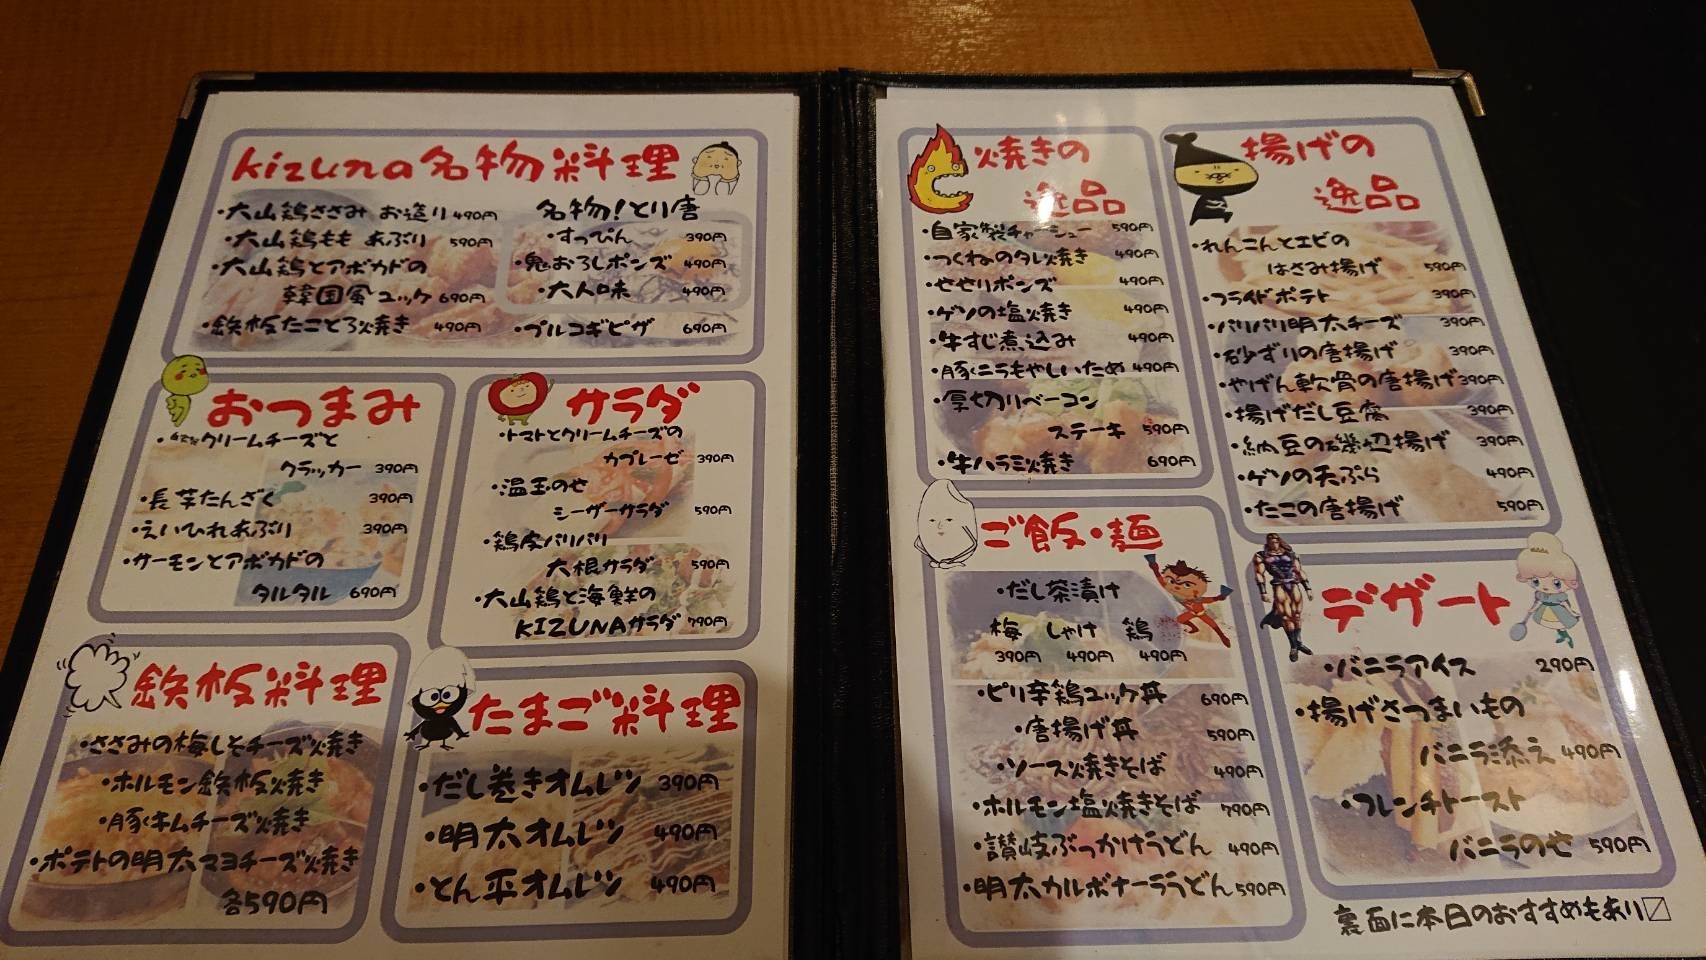 kizuna名物料理
・大山鶏ささみ お造り 490円
・大山鶏もも あぶり 590円
・大山鶏とアボカドの
韓国風ユッケ 690円
・鉄板たことろ焼き 490円
名物!とり唐
・すっぴん 390円
・鬼おろしポンズ 490円
・大人味 490円
・プルコギピザ 690円
おつまみ
クリームチーズと
クラッカー 390円
・長芋たんざく 390円
・えいひれあぶり 390円
・サーモンとアボカドの
タルタル 690円
サラダ
・トマトとクリームチーズの
カプレーゼ 390円
・温玉のせ
シーザーサラダ 590円
・鶏皮パリパリ
大根サラダ 590円
・大山鶏と海鮮の
KIZUNAサラダ 790円
鉄板料理
・ささみの梅しそチーズ焼き
・ホルモン鉄板焼き
・豚キムチーズ焼き
・ポテトの明太マヨチーズ焼き
各590円
たまご料理
・だし巻きオムレツ 390円
・明太オムレツ 490円
・とん平オムレツ 490円
焼きの
逸品
・自家製チャーシュー 590円
・つくねのタレ焼き 490円
・せせりポンズ 490円
・ゲソの塩焼き 490円
・牛すじ煮込み 490円
・豚ニラもやしいため 490円
・厚切りベーコン
ステーキ 590円
・牛ハラミ焼き 690円
揚げの
逸品
・れんこんとエビの
はさみ揚げ 590円
・フライドポテト 390円
・パリパリ明太チーズ 390円
・砂ずりの唐揚げ 390円
・やげん軟骨の唐揚げ 390円
・揚げだし豆腐 390円
・納豆の磯辺揚げ 390円
・ゲソの天ぷら 490円
・たこの唐揚げ 590円
ご飯・麺
・だし茶漬け
梅 しゃけ 鶏
390円 490円 490円
・ピリ辛鶏ユッケ丼 690円
・唐揚げ丼 590円
・ソース焼きそば 490円
・ホルモン塩焼きそば 790円
・讃岐ぶっかけうどん 490円
・明太カルボナーラうどん 590円
デザート
・バニラアイス 290円
・揚げさつまいもの
バニラ添え 490円
・フレンチトースト
バニラのせ 590円
裏面に本日のおすすめもあり〼